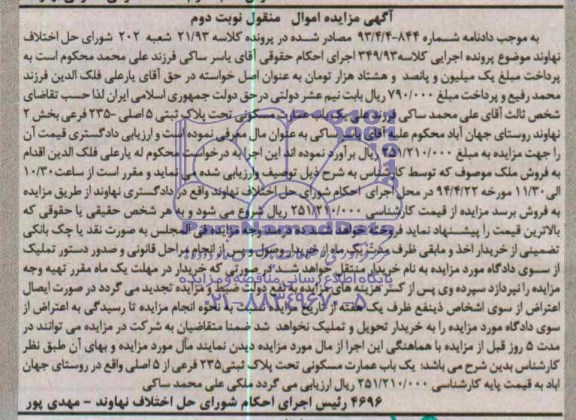 آگهی مزایده اموال منقول نوبت دوم
به موجب دادنامه شماره ۸۴۴-۹۳/۴/۴ مصادر شده در پرونده کلاسه ۲۱/۹۳ شعبه ۲۰۲ شورای حل اختلاف
نهاوند موضوع پرونده اجرایی کلاسه ۳۴۹/۹۳ اجرای احکام حقوقی آقای یاسر ساکی فرزند علی محمد محکوم است به
پرداخت مبلغ یک میلیون و پانصد و هشتاد هزار تومان به عنوان اصل خواسته در حق آقای یارعلی فلک الدین فرزند
محمد رفیع و پرداخت مبلغ ۷۹۰/۰۰۰ ریال بابت نیم عشر دولتی در حق دولت جمهوری اسلامی ایران لذا حسب تقاضای
شخص ثالث آقای علی محمد ساکی فروش یک باب عمارت مسکونی تحت پلاک ثبتی ۵ اصلی -۲۳۵ فرعی بخش ۲
نهاوند روستای جهان آباد محکوم علیه آقای یاسر ساکی به عنوان مال معرفی نموده است و ارزیابی دادگستری قیمت آن
را جهت مزایده به مبلغ ۲۵۱/۲۱۰/۰۰۰ ریال برآورد نموده اند این اجرا به درخواست محکوم له یارعلی فلک الدین اقدام
به فروش ملک موصوف که توسط کارشناس به شرح ذیل توصیف و ارزیابی شده می نماید و مقرر است از ساعت ۱۰/۳۰
الی ۱۱/۳۰ مورخه ۹۴/۴/۲۲ در محل اجرای احکام شورای حل اختلاف نهاوند واقع در دادگستری نهاوند از طریق مزایده
به فروش برسد مزایده از قیمت کارشناسی ۲۵۱/۲۱۰/۰۰۰ ریال شروع می شود و به هر شخص حقیقی یا حقوقی که
بالاترین قیمت را پیشنهاد نماید فروخته خواهد شد وجه مزایده فی المجلس به صورت نقد یا چک بانکی
تضمینی از خریدار اخذ و مابقی ظرف مدت یک ماه از خریدار وصول و پس از انجام مراحل قانونی و صدور دستور تملیک
از سوی دادگاه مورد مزایده به نام خریدار منتقل خواهد شد در صورتی که خریدار در مهلت یک ماه مقرر تهیه وجه
مزایده را نپردازد سپرده وی پس از کسر هزینه های مزایده به نفع دولت ضبط و مزایده تجدید می گردد در صورت ایصال
اعتراض از سوی اشخاص ذینفع ظرف یک هفته از تاریخ مزایده نسبت به نحوه انجام مزایده تا رسیدگی به اعتراض از
سوی دادگاه مورد مزایده را به خریدار تحویل و تملیک نخواهد شد ضمنا متقاضیان به شرکت در مزایده می توانند در
مدت ۵ روز قبل از مزایده با هماهنگی این اجرا از مال مورد مزایده دیدن نمایند مال مورد مزایده و بهای آن طبق نظر
کارشناس بدین شرح می باشد: یک باب عمارت مسکونی تحت پلاک ثبتی ۲۳۵ فرعی از ۵ اصلی واقع در روستای جهان
اباد به قیمت پایه کارشناسی ۲۵۱/۲۱۰/۰۰۰ ریال ارزیابی می گردد ملکی علی محمد ساکی
۴۶۹۶ رئیس اجرای احکام شورای حل اختلاف نهاوند - مهدی پور
پایگاه اطلاع رسانی مناقصه و مزایده
۰۲۱-۸۸۳۴۹۶۷۰-۵